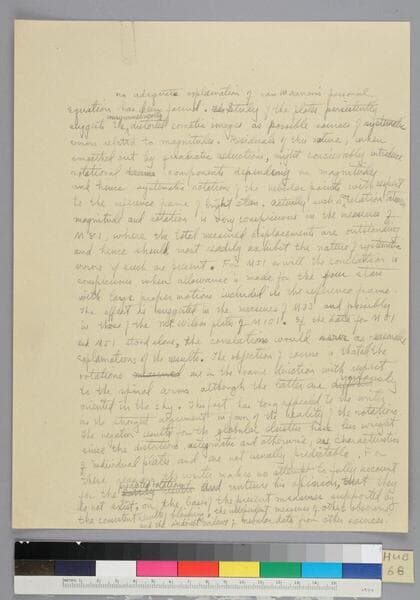 no adequate explanation of van Maanen's personal
equation has been found. Study of the plates persistently
suggests the unsymmetrically distorted comatic images as possible sources of systematic
errors related to magnitudes. Residuals of this nature, when
smoothed out by quadratic reductions, might conceivably introduce
rotational components depending on magnitudes
and hence systematic rotation of the nebular points with respect
to the reference frame of bright stars. Actually such a relation
magnitude and rotation is very conspicuous in the measures of
M 81, where the total measured displacements are outstanding
and hence should most readily exhibit the nature of systematic
errors if such are present. For M 51 as well the correlation is
conspicuous when allowance is made for the four stars
with large proper motions included in the reference frame.
The effect is suggested in the measures of M 33 and possibly
in those of the Mt Wilson plates of M 101. If the data for M 81
and M 51 stood alone, the correlations would as
explanations of the results. The objection of course is that the
rotations are in the same direction with respect
to the spiral arms although the latter are
oriented in the sky. This fact has long appeared to the writer
as the strongest argument in favor of the reality of the rotations.
The negative results for the globular clusters have less weight
since the distortions, astigmatic and otherwise, are characteristics
of individual plates and are not usually predictable. For
these the writer makes no attempt to fully account
for the and ventures his opinion, that they
do not exist, on the basis of the present measures supported by
the consistent results of , the independent measures of other observers
and the indirect evidence of nebular data from other sources.
HUB
68